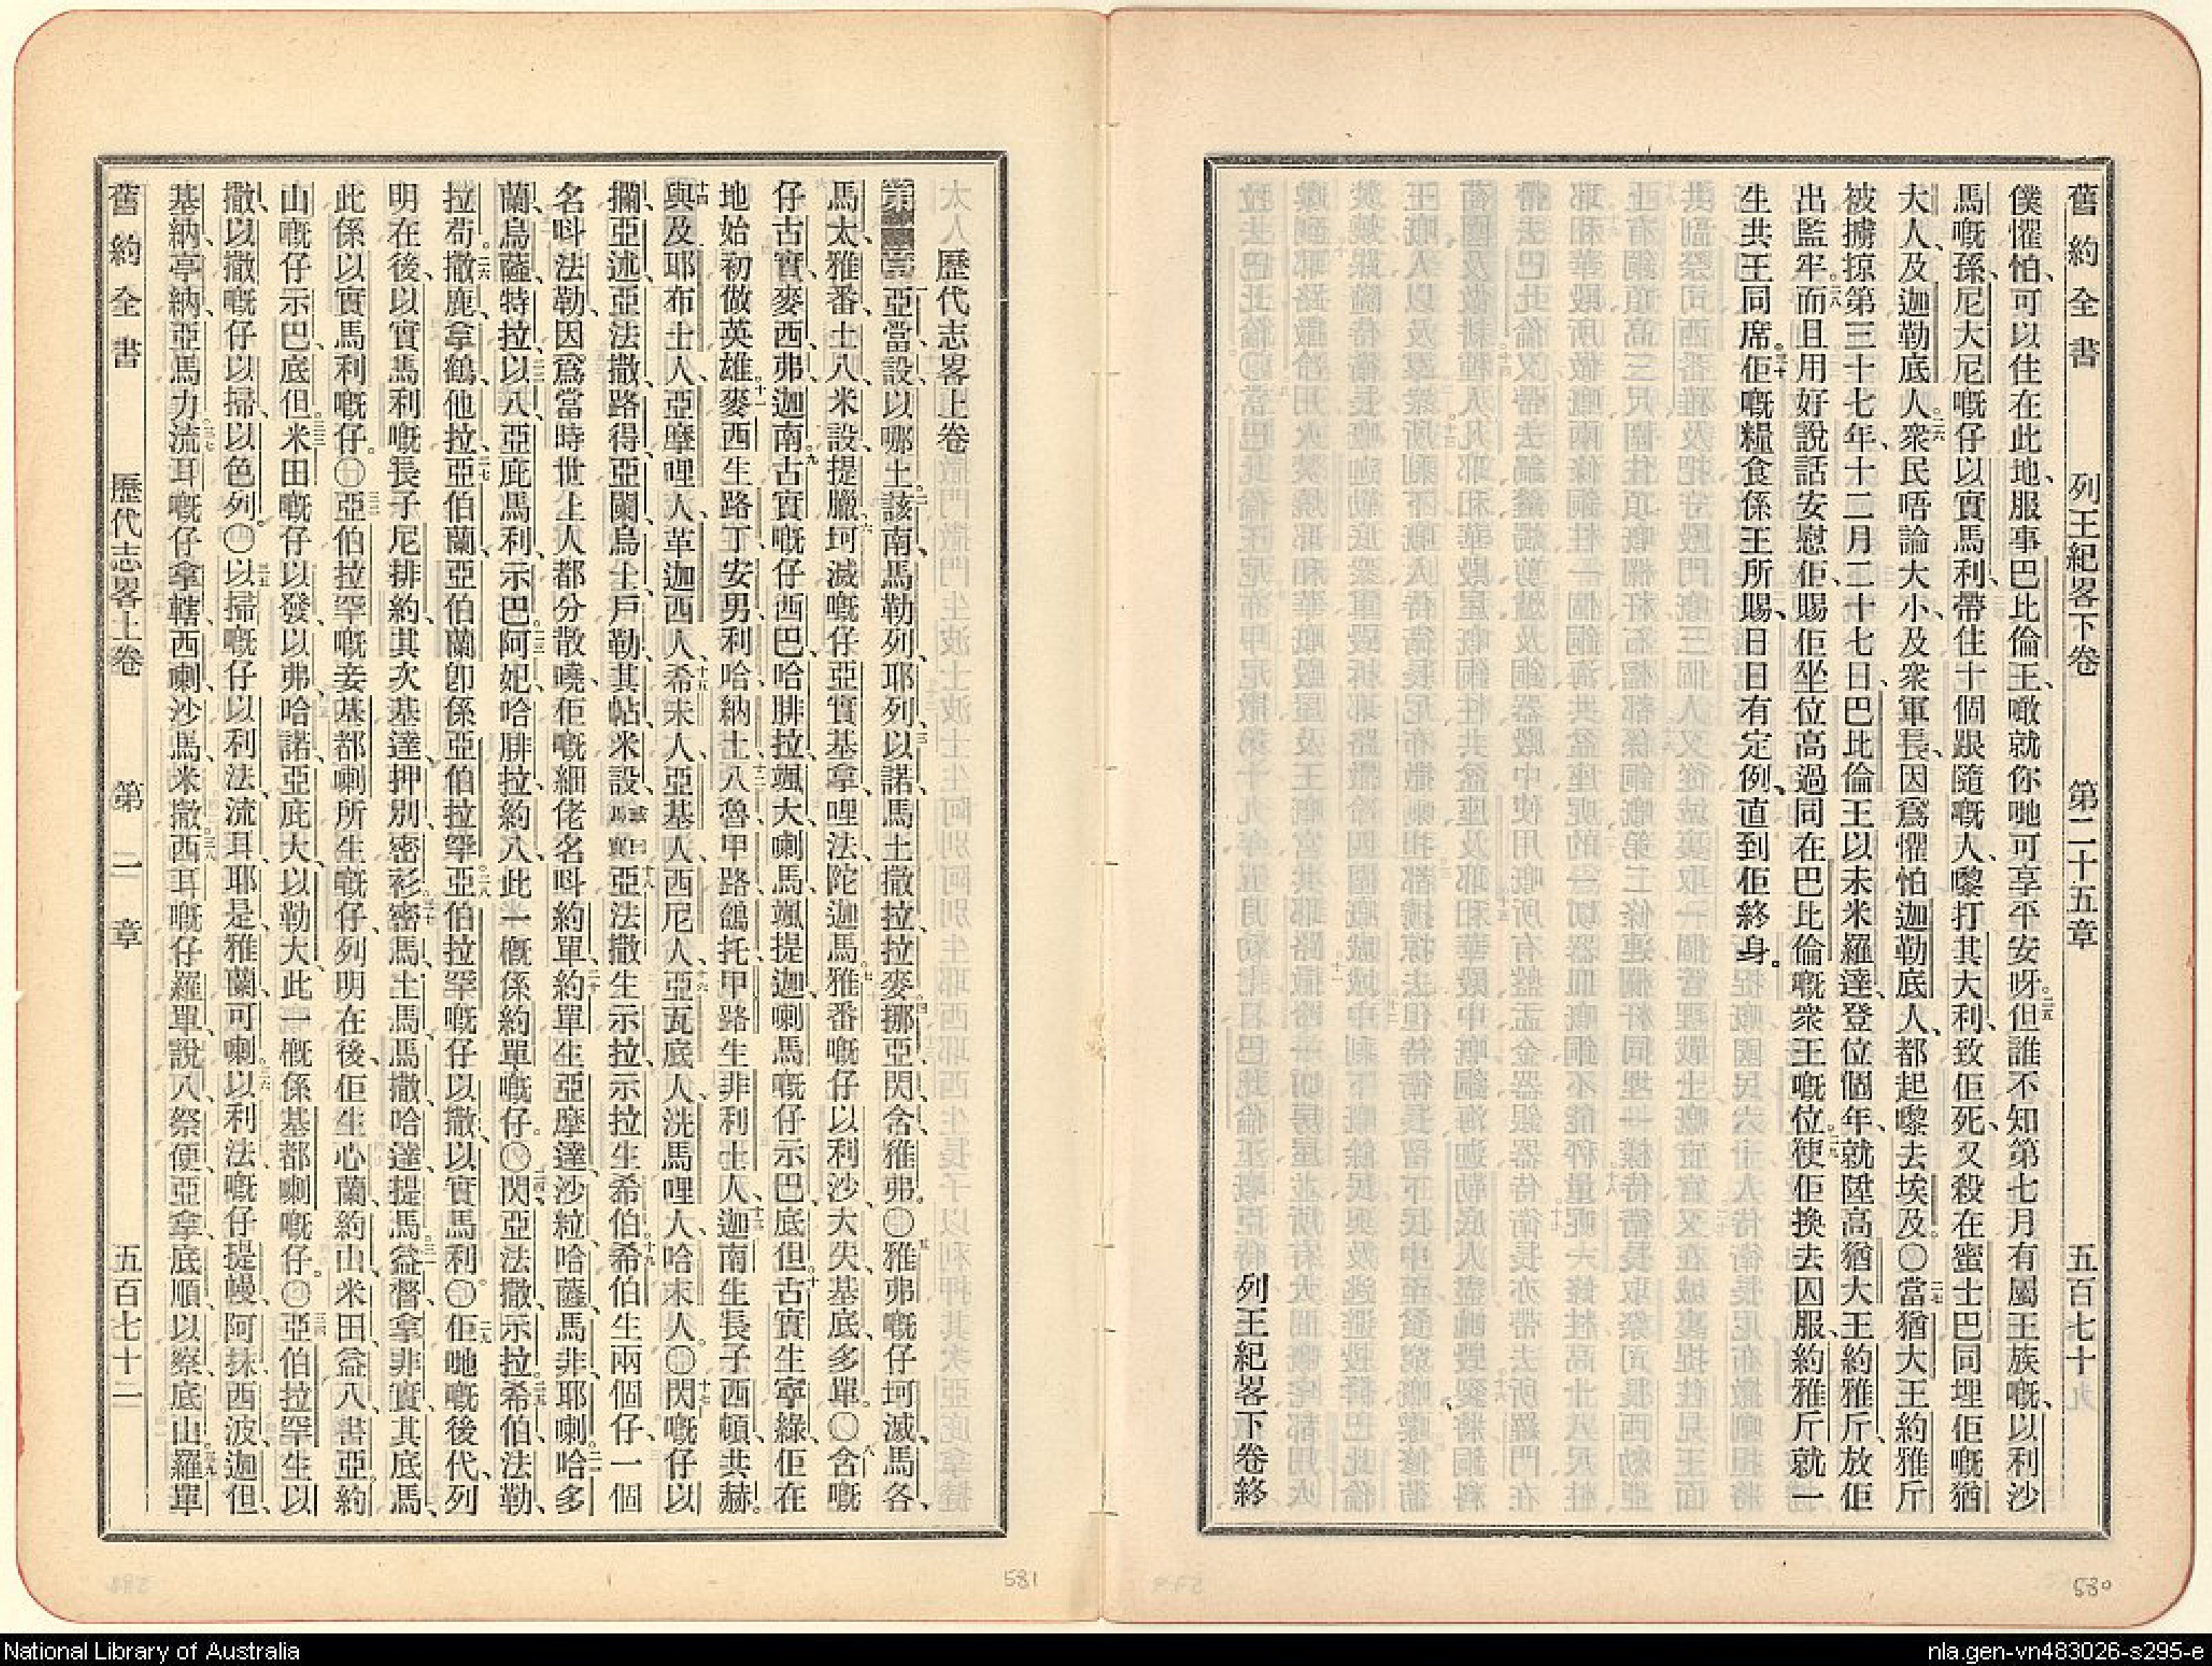 舊約全書 列王紀畧下卷 第二十五章 五百七十九
僕懼怕、可以住在此地、服事巴比倫王、噉就你哋可享平安呀。二五但誰不知第七月有屬王族嘅、以利沙
馬嘅孫、尼大尼嘅仔以實馬利、帶住十個跟隨嘅人、嚟打其大利、致佢死、又殺在蜜士巴同埋佢嘅猶
大人、及迦勒底人。二六衆民唔論大小、及衆軍長、因爲懼怕迦勒底人、都起嚟去埃及。〇二七當猶大王約雅斤
被擄掠第三十七年、十二月二十七日、巴比倫王以未米羅達、登位個年、就陞高猶大王約雅斤、放佢
出監牢。二八而且用好說話安慰佢、賜佢坐位高過同在巴比倫嘅衆王嘅位。二九使佢換去囚服、約雅斤就一
生共王同席。三十佢嘅糧食係王所賜、日日有定例、直到佢終身。
列王紀畧下卷終
歷代志畧上卷
第一章 一亞當、設、以哪士、二該南、馬勒列、耶列、三以諾、馬土撒拉、拉麥、四挪亞、閃、含、雅弗。〇五雅弗嘅仔坷滅、馬各、
馬太、雅番、土八、米設、提臘、六坷滅嘅仔亞實基拿、哩法、陀迦馬。七雅番嘅仔以利沙、大失、基底、多單。〇八含嘅
仔古實、麥西、弗、迦南。九古實嘅仔西巴、哈腓拉、颯大、喇馬、颯提迦、喇馬嘅仔示巴、底但。十古實生寧綠、佢在
地始初做英雄。十一麥西生路丁、安男、利哈、納土八、十二魯甲路、鴿托、甲路生非利士人、十三迦南生長子西頓、共赫。
十四與及耶布士人、亞摩哩人、革迦西人、十五希未人、亞基人、西尼人、十六亞瓦底人、洗馬哩人、哈末人。〇十七閃嘅仔以
攔、亞述、亞法撒、路得、亞蘭、烏士、戶勒、其帖、米設、十八亞法撒生示拉、示拉生希伯。十九希伯生兩個仔、一個
名呌法勒、因爲當時世上人都分散嘵、佢嘅細佬名呌約單、二十約單生亞摩達、沙粒、哈薩、馬非、耶喇、二一哈多
蘭、烏薩、特拉、二二以八、亞庇馬利、示巴、二三阿妃、哈腓拉、約八、此一概係約單嘅仔。〇二四閃、亞法撒、示拉、二五希伯、法勒、
拉苟、二六撒鹿、拿鶴、他拉、二七亞伯蘭、亞伯蘭卽係亞伯拉罕。二八亞伯拉罕嘅仔以撒、以實馬利。〇二九佢哋嘅後代、列
明在後、以實馬利嘅長子尼排約、其次基達、押別、密衫、三十密馬、土馬、馬撒、哈達、提馬、三一益督、拿非實、其底馬、
此係以實馬利嘅仔。〇三二亞伯拉罕嘅妾基都喇所生嘅仔、列明在後、佢生心蘭、約山、米田、益八、書亞、約
山嘅仔示巴、底但。三三米田嘅仔以發、以弗、哈諾、亞庇大、以勒大、此一概係基都喇嘅仔。〇三四亞伯拉罕生以
撒、以撒嘅仔以掃、以色列。〇三五以掃嘅仔以利法、流耳、耶是、雅蘭、可喇、三六以利法嘅仔提幔、阿抹、西波、迦但、
基納、亭納、亞馬力、三七流耳嘅仔拿轄、西喇、沙馬、米撒、三八西耳嘅仔羅單、說八、祭便、亞拿、底順、以察、底山。三九羅單
舊約全書 歷代志畧上卷 第一章 五百七十二
581
580
National Library of Australia
nla.gen-vn483026-s295-e